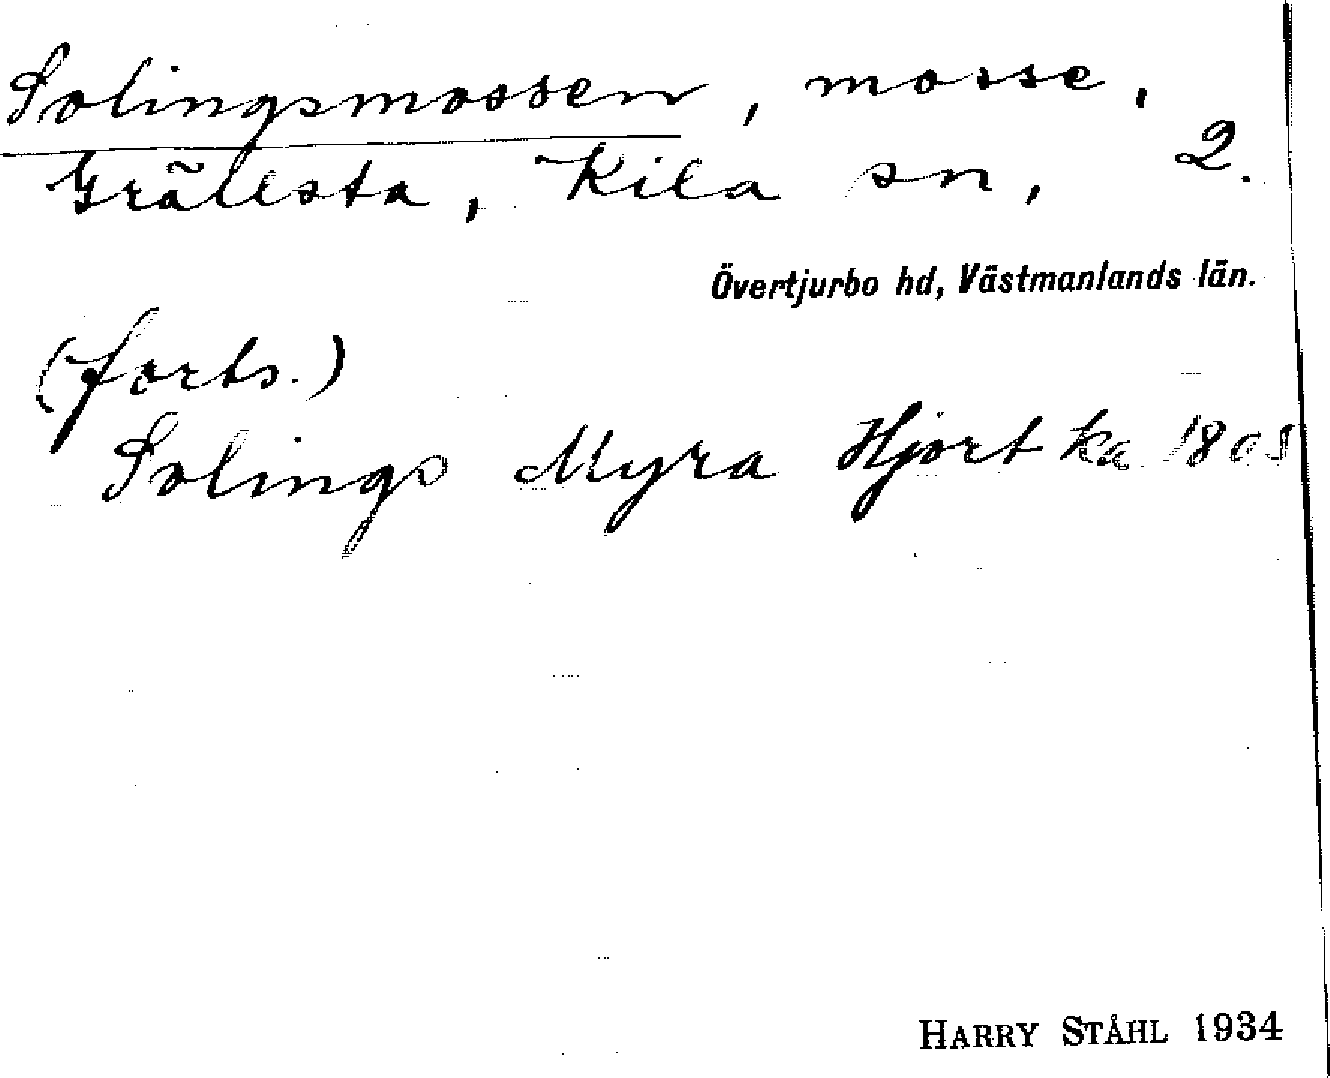 Solingsmossen, mosse,
Grällsta, Kila sn, 2.
Övertjurbo hd, Västmanlands län.
(forts.)
Solings Myra Hjort ka
HARRY STÅHL 1934